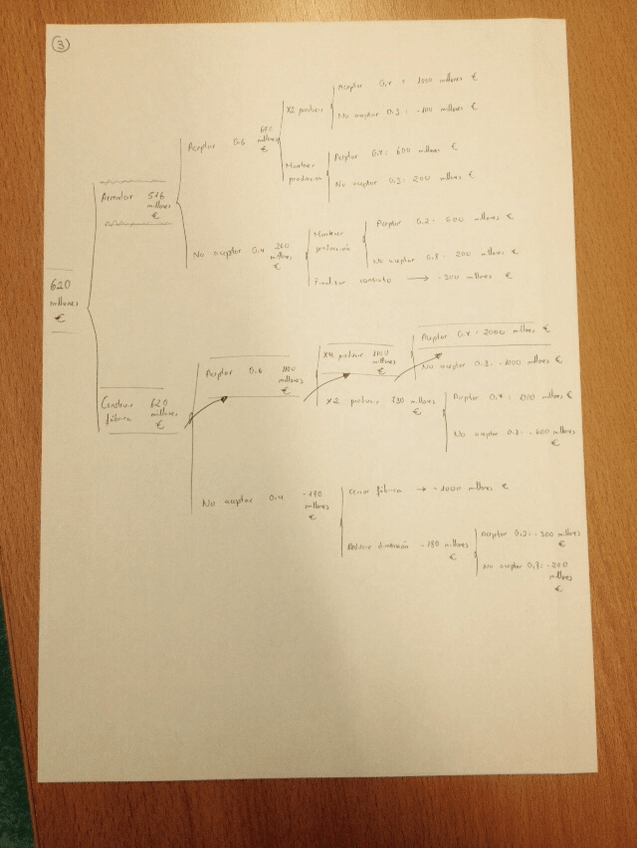 3
Aceptar 0.7: 1000 millones €
X2 producir
No aceptar 0.3: -100 millones €
Aceptar 0.6
millones
€
Mantener
producción
Aceptar 0.7: 600 millones €
No aceptar 0.3: 200 millones €
516
millones
€
No aceptar 0.4 260
millones
€
Mantener
producción
Aceptar 0.2: 500 millones €
No aceptar 0.8: 200 millones €
Finalizar contrato → -300 millones €
620
millones
€
Construir
fábrica 620
millones
€
Aceptar 0.6
millones
€
X4 producir 1100
millones
€
Aceptar 0.7: 2000 millones €
No aceptar 0.3: -1000 millones €
X2 producir
millones
€
Aceptar 0.7:
millones
€
No aceptar 0.3: -600
millones
€
No aceptar 0.4 -180
millones
€
Cerrar fábrica → -1000 millones €
Reducir dimensión -180 millones
€
Aceptar 0.2: -300 millones
€
No aceptar 0.8: -200
millones
€